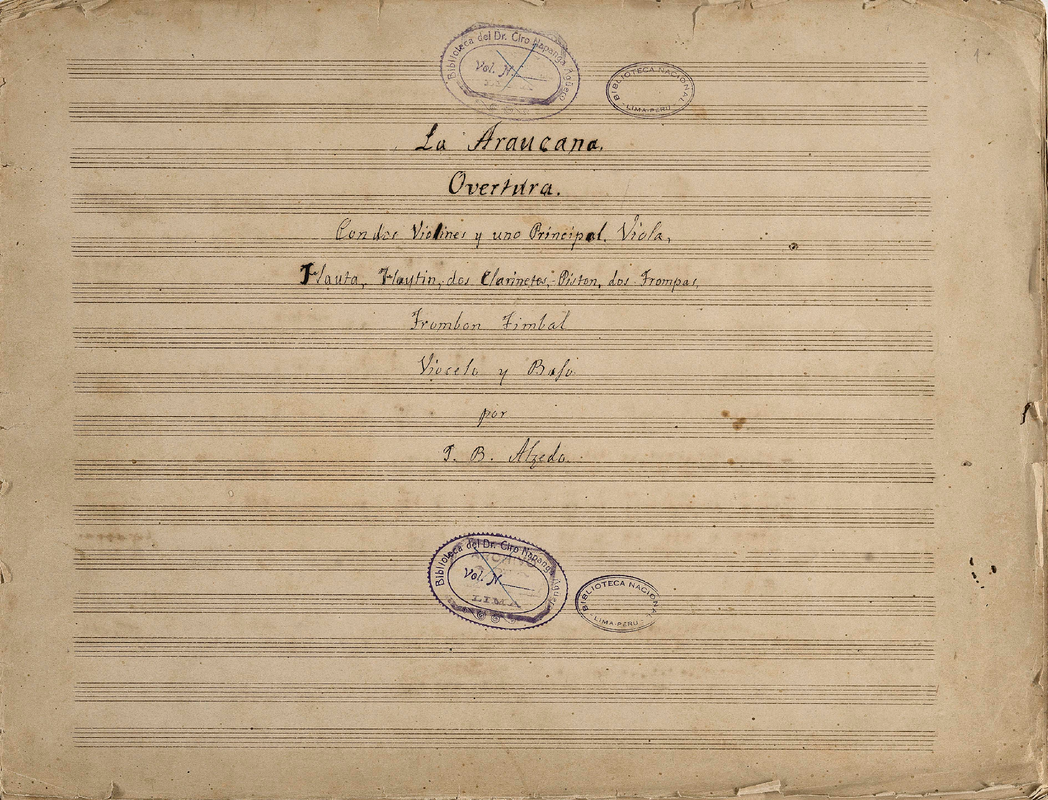 Biblioteca del Dr. Ciro Napanga Agüero
Vol. N.
BIBLIOTECA NACIONAL
- LIMA-PERÚ -
La Araucana.
Overtura.
Con dos Violines y uno Principal. Viola,
Flauta, Flautin, dos Clarinetes, Piston, dos Trompas,
Trombon Timbal
Viocelo y Bajo
por
J. B. Alzedo.
Biblioteca del Dr. Ciro Napanga Agüero
Vol. N
LIMA
BIBLIOTECA NACIONAL
- LIMA-PERÚ -